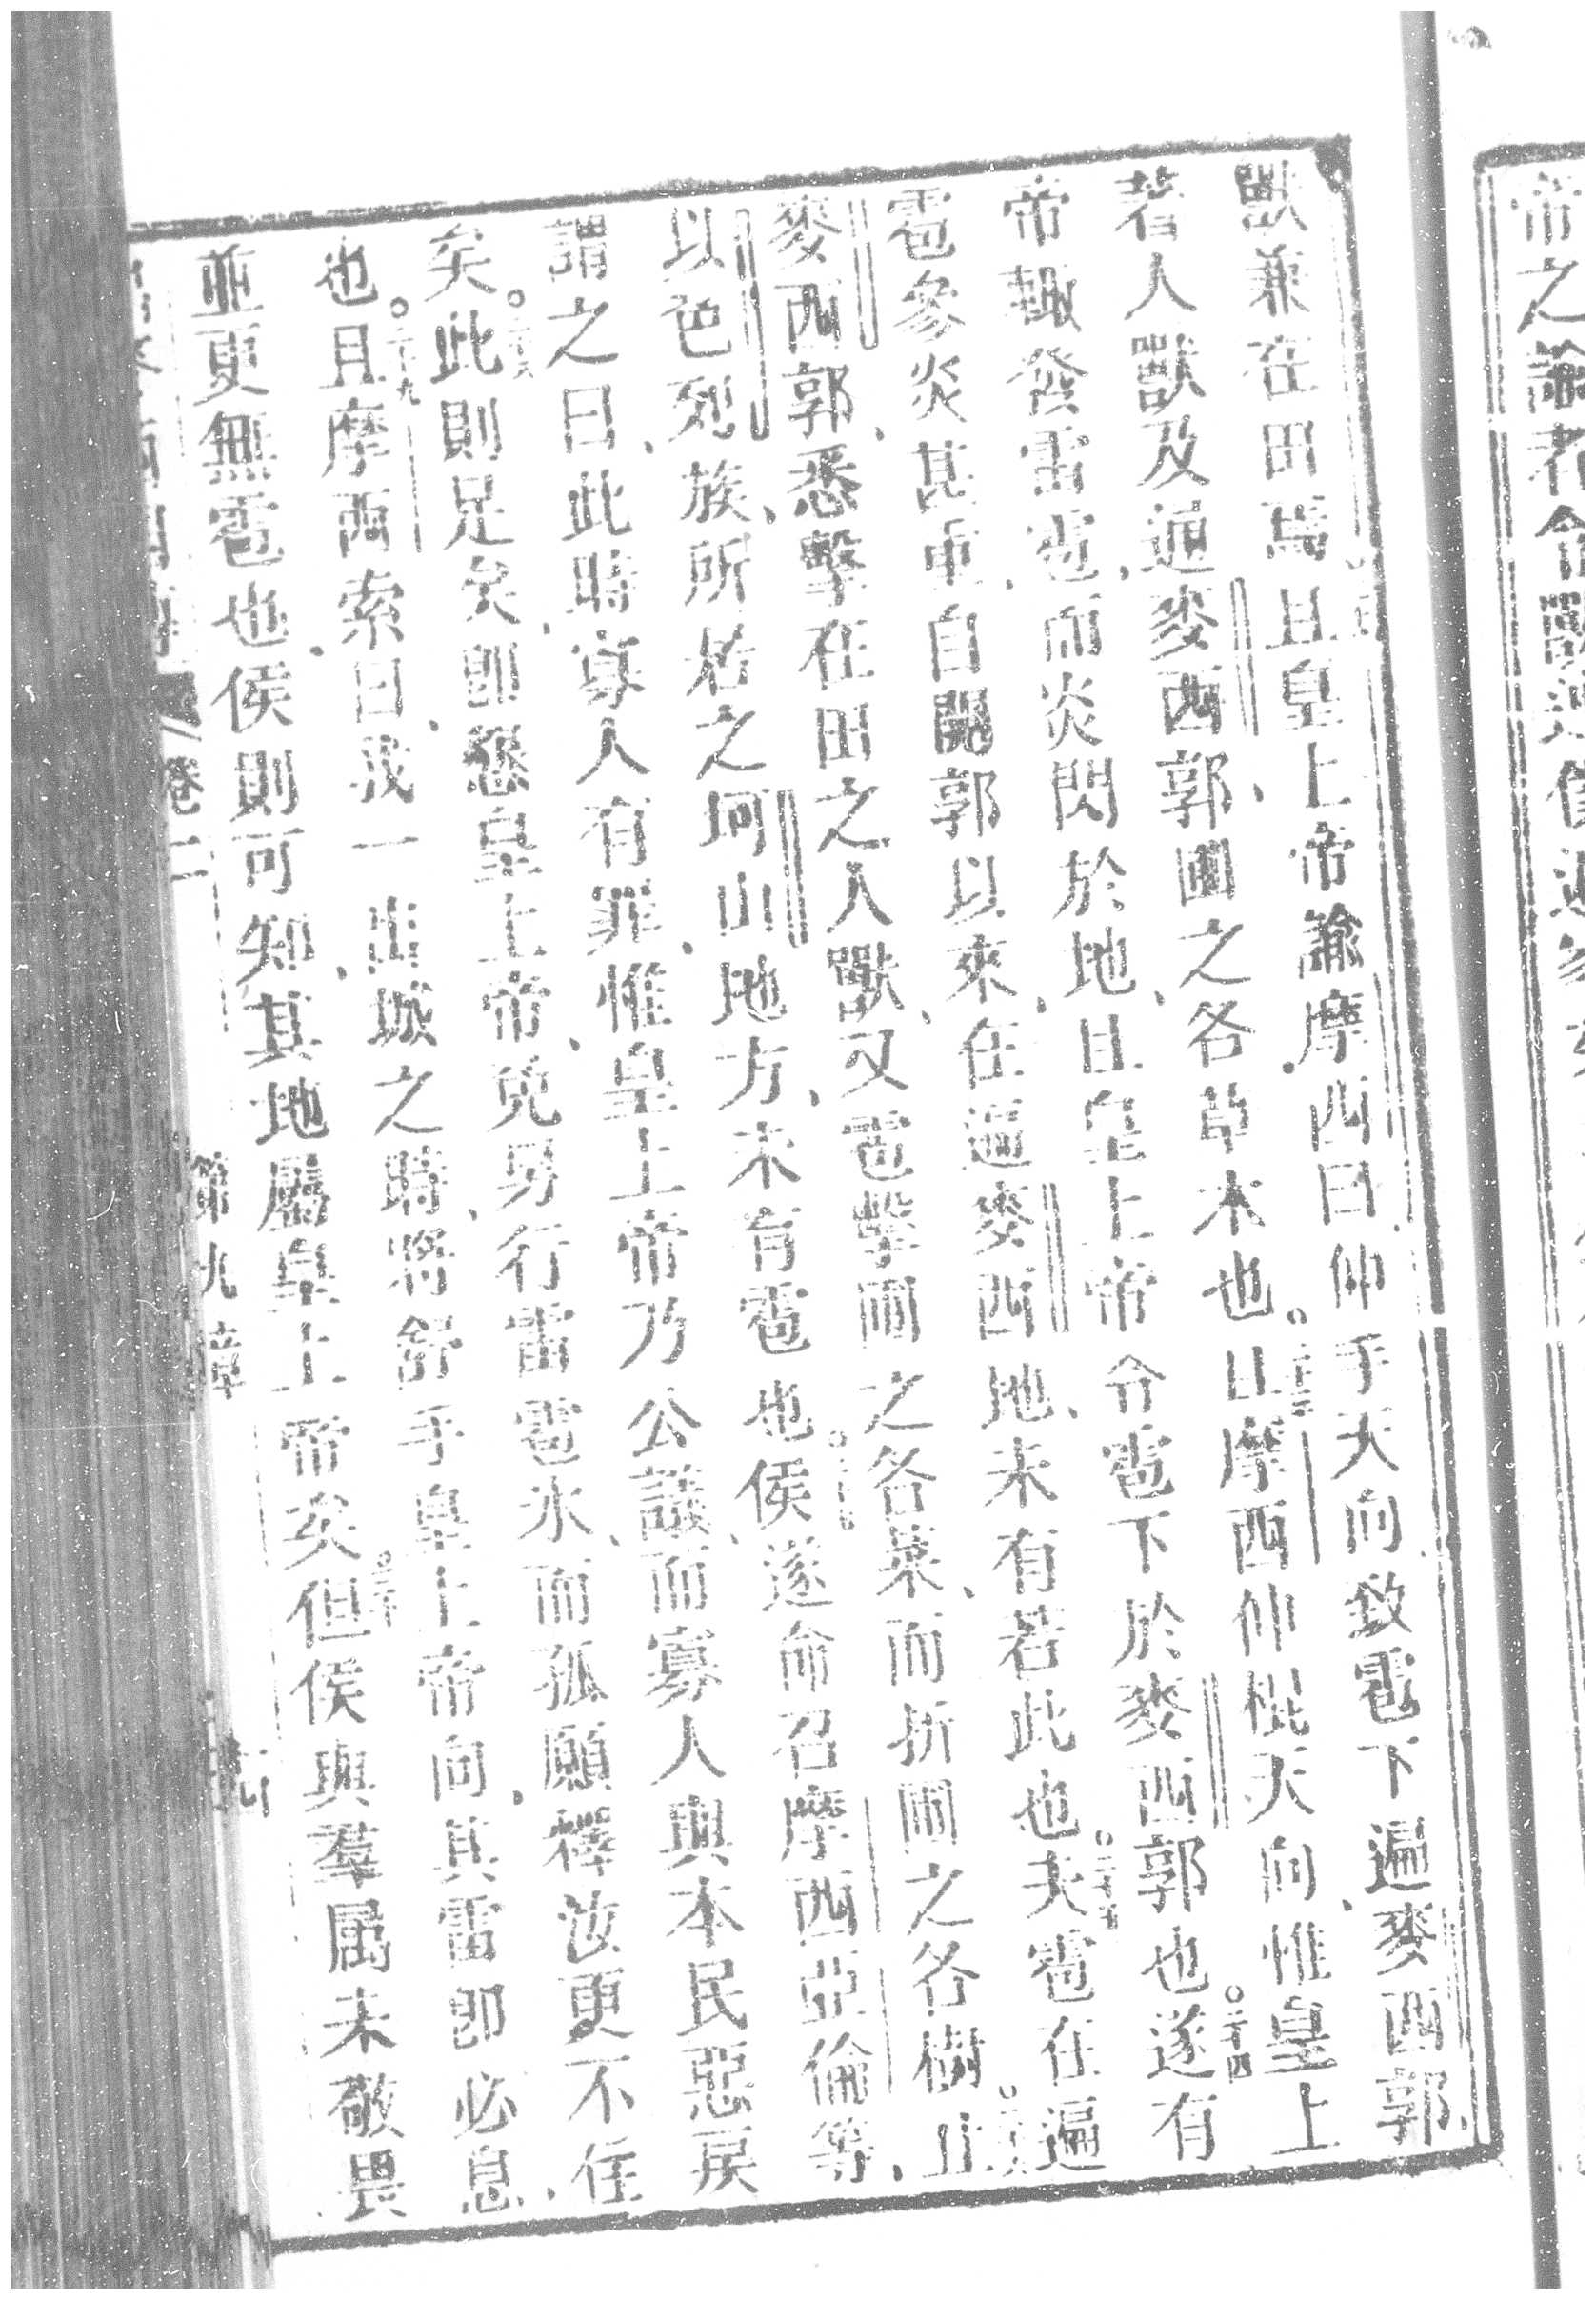 帝之諭者令
獸兼在田焉且皇上帝諭摩西曰伸手天向致雹下遍麥西郭
若人獸及通麥西郭圃之各草木也〇二十三且摩西伸棍天向惟皇上
帝輙發雷雹而炎閃於地且皇上帝令雹下於麥西郭也〇二十四遂有
雹參炎甚重自開郭以來在遍麥西地未有若此也〇二十五夫雹在遍
麥西郭悉擊在田之人獸又雹擊圃之各菜而折圃之各樹〇二十六且
以色列族所居之坷山地方未有雹也〇二十七侯遂命召摩西亞倫等
謂之曰此時寡人有罪惟皇上帝乃公議而寡人與本民惡戾
矣〇二十八此則足矣卽懇皇上帝免另行雷雹氷而孤願釋汝更不住
也〇二十九且摩西索曰我一出城之時將舒手皇上帝向其雷卽必息
並更無雹也侯則可知其地屬皇上帝矣〇三十但侯與羣屬未敬畏
卷二 第九章